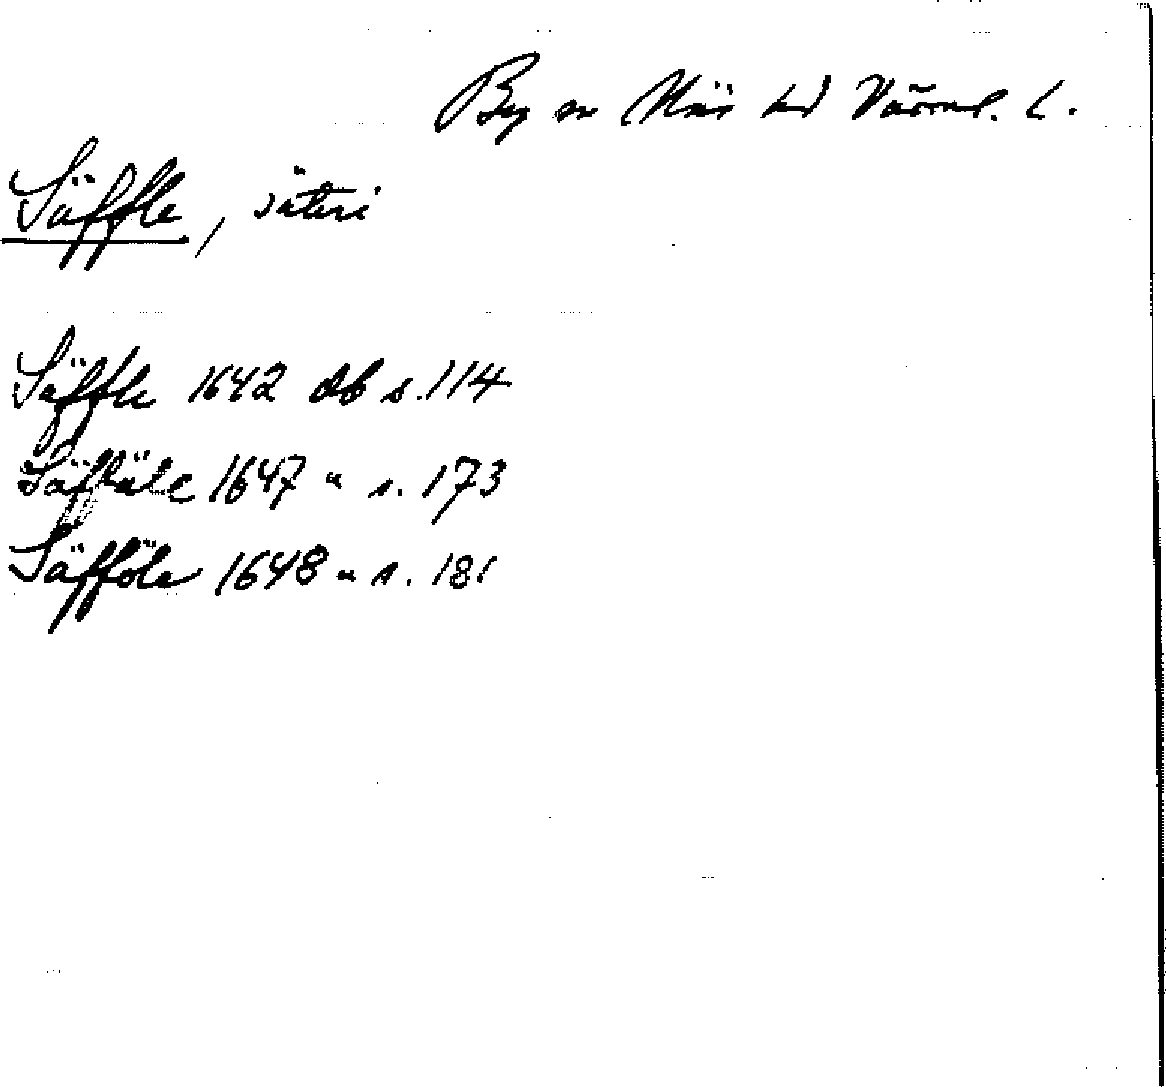 By sn Näs hd Värml. l.
Säffle, säteri
Säffle 1642 db s. 114
Säffäle 1647 " s. 173
Säfföle 1648 " s. 181